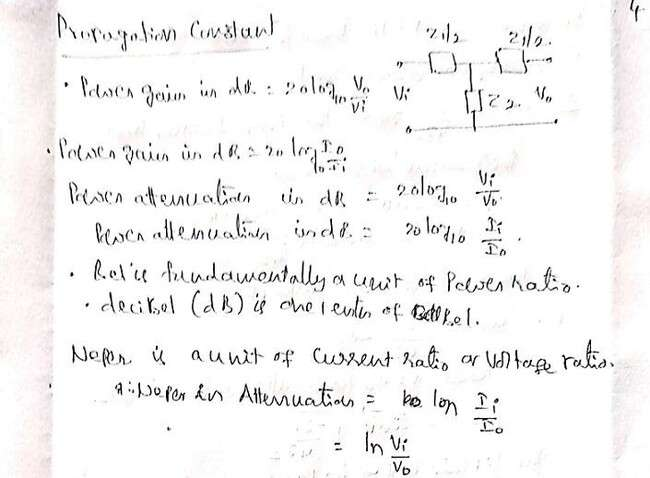 4
Propagation Constant
Z1/2 Z1/2
· Power gain in dB = 20 log10 Vo/Vi
Vi Z2 Vo
· Power gain in dB = 20 log10 Io/Ii
Power attenuation in dB = 20 log10 Vi/Vo
Power attenuation in dB = 20 log10 Ii/Io.
· Bel is fundamentally a unit of Power ratio.
· decibel (dB) is one tenth of Bel.
Neper is a unit of Current ratio or Voltage ratio.
Neper in Attenuation = Ii/Io
= ln Vi/Vo